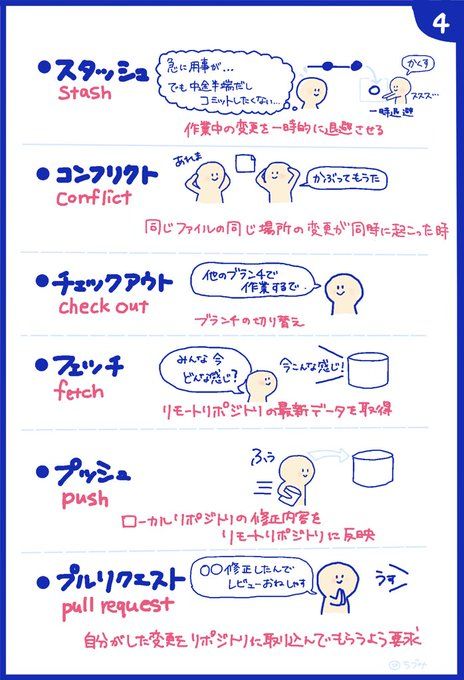 4
スタッシュ
stash
急に用事が...
でも中途半端だし
コミットしたくない...
かくす
ススス...
一時退避
作業中の変更を一時的に退避させる
コンフリクト
conflict
あれま
かぶってもうた
同じファイルの同じ場所の変更が同時に起こった時
チェックアウト
check out
他のブランチで
作業するで.
ブランチの切り替え
フェッチ
fetch
みんな今
どんな感じ?
今こんな感じ!
リモートリポジトリの最新データを取得
プッシュ
push
ふぅ
ローカルリポジトリの修正内容を
リモートリポジトリに反映
プルリクエスト
pull request
〇〇修正したんで
レビューおねしゃす
うす
自分がした変更をリポジトリに取り込んでもらうよう要求